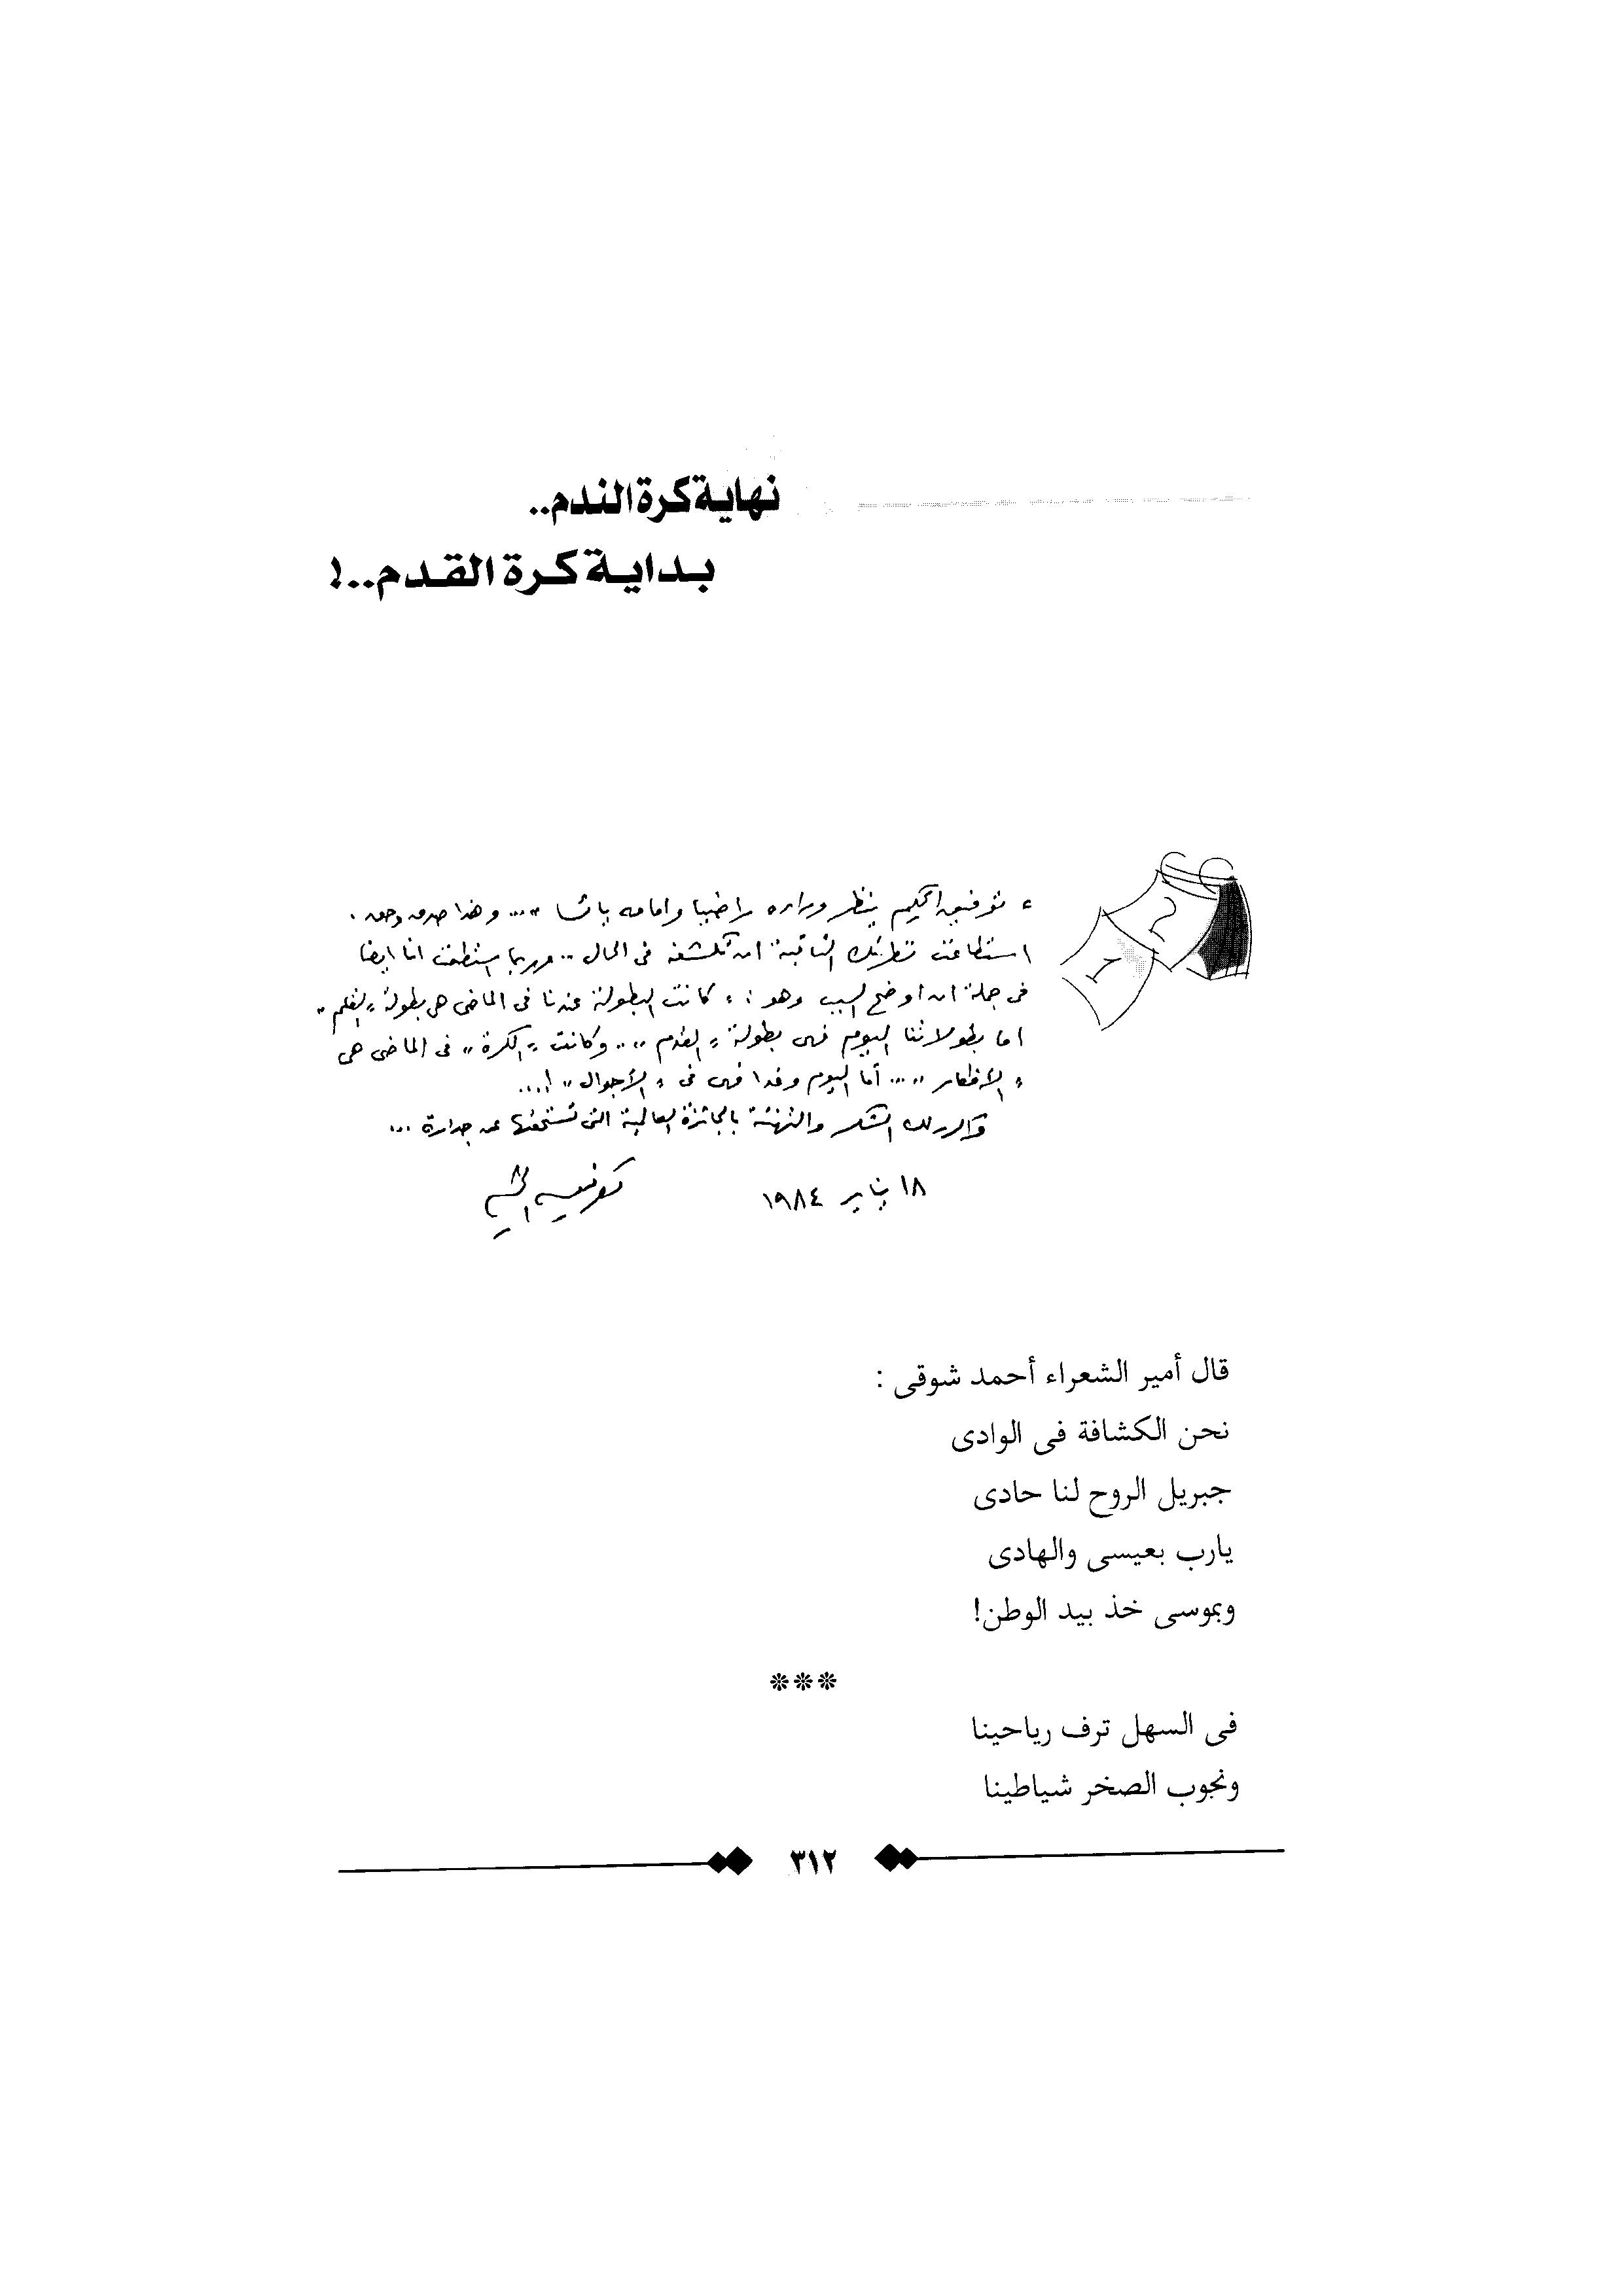 نهاية كرة الندم..
بداية كرة القدم..!
« توفيق الحكيم ينظر وراءه راضيا وأمامه يائسا » ... وهذا صدق وحق .
استطاعت نظرتك الثاقبة ان تكشفه فى الحال .. وربما استطعت انا ايضا
فى جملة ان اوضح السبب وهو : « كانت البطولة عندنا فى الماضى هى بطولة « القلم »
اما بطولاتنا اليوم فهى بطولة « القدم » .. وكانت « الكرة » فى الماضى هى
« الأفكار » ... أما اليوم وغدا فهى فى « الأجوال » !...
والشكر والتهنئة بالجائزة العالمية التى تستحقها عن جدارة ...
١٨ يناير ١٩٨٤ توفيق الحكيم
2
1
قال أمير الشعراء أحمد شوقى :
نحن الكشافة فى الوادى
جبريل الروح لنا حادى
يارب بعيسى والهادى
وبموسى خذ بيد الوطن!
***
فى السهل ترف رياحينا
ونجوب الصخر شياطينا
٣١٢